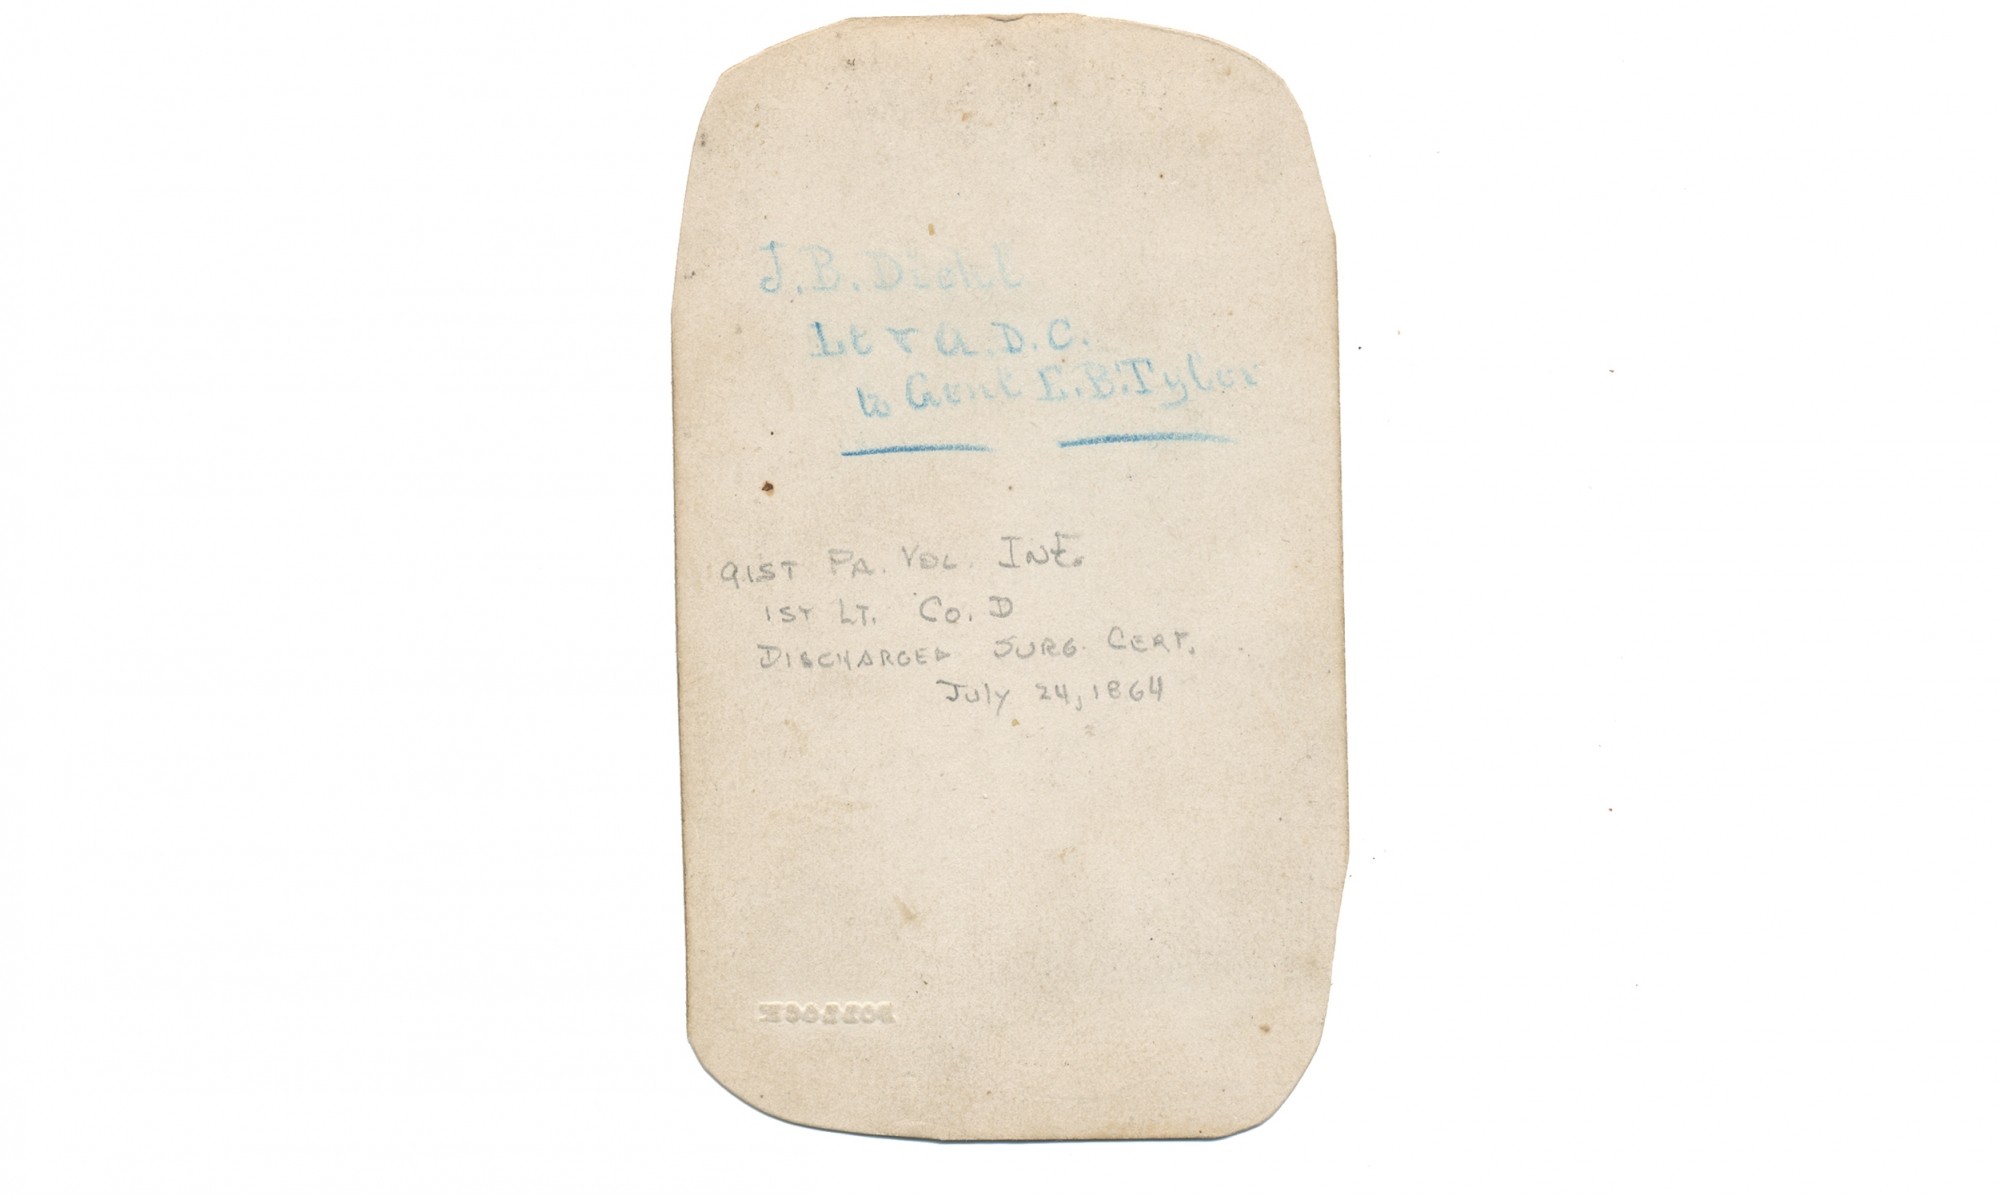 J. B. Diehl
Lt & A. D. C.
to Genl E. B. Tyler
91ST PA. VOL. INF.
1ST LT. CO. D
DISCHARGED SURG. CERT.
July 24, 1864